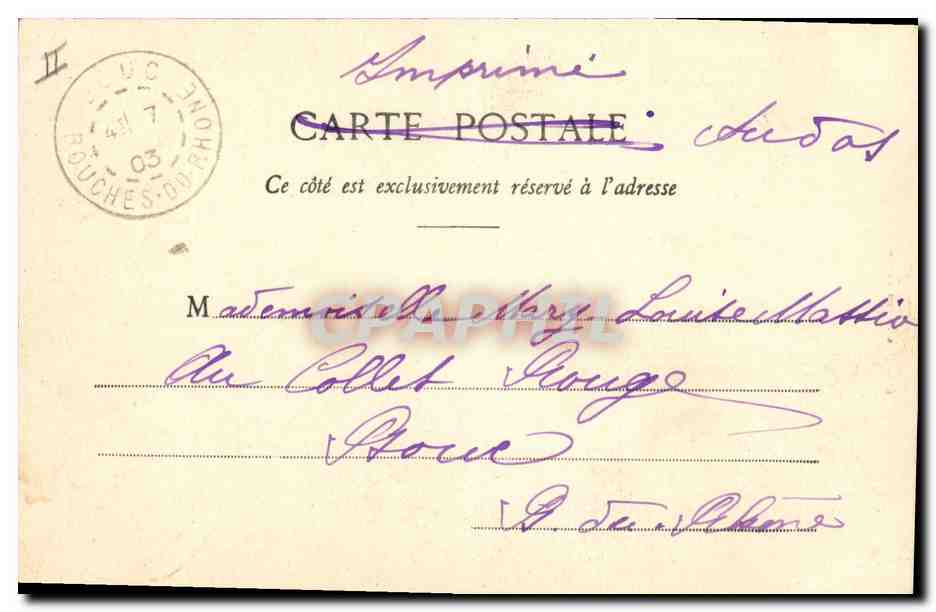 II
Imprimé
CARTE POSTALE
Ce côté est exclusivement réservé à l'adresse
BOUCHES-DU-RHONE
7
03
Mademoiselle Mary Louise Mattio
Au Collet Rouge
Bouc
B. du Rhône
CPAPHIL